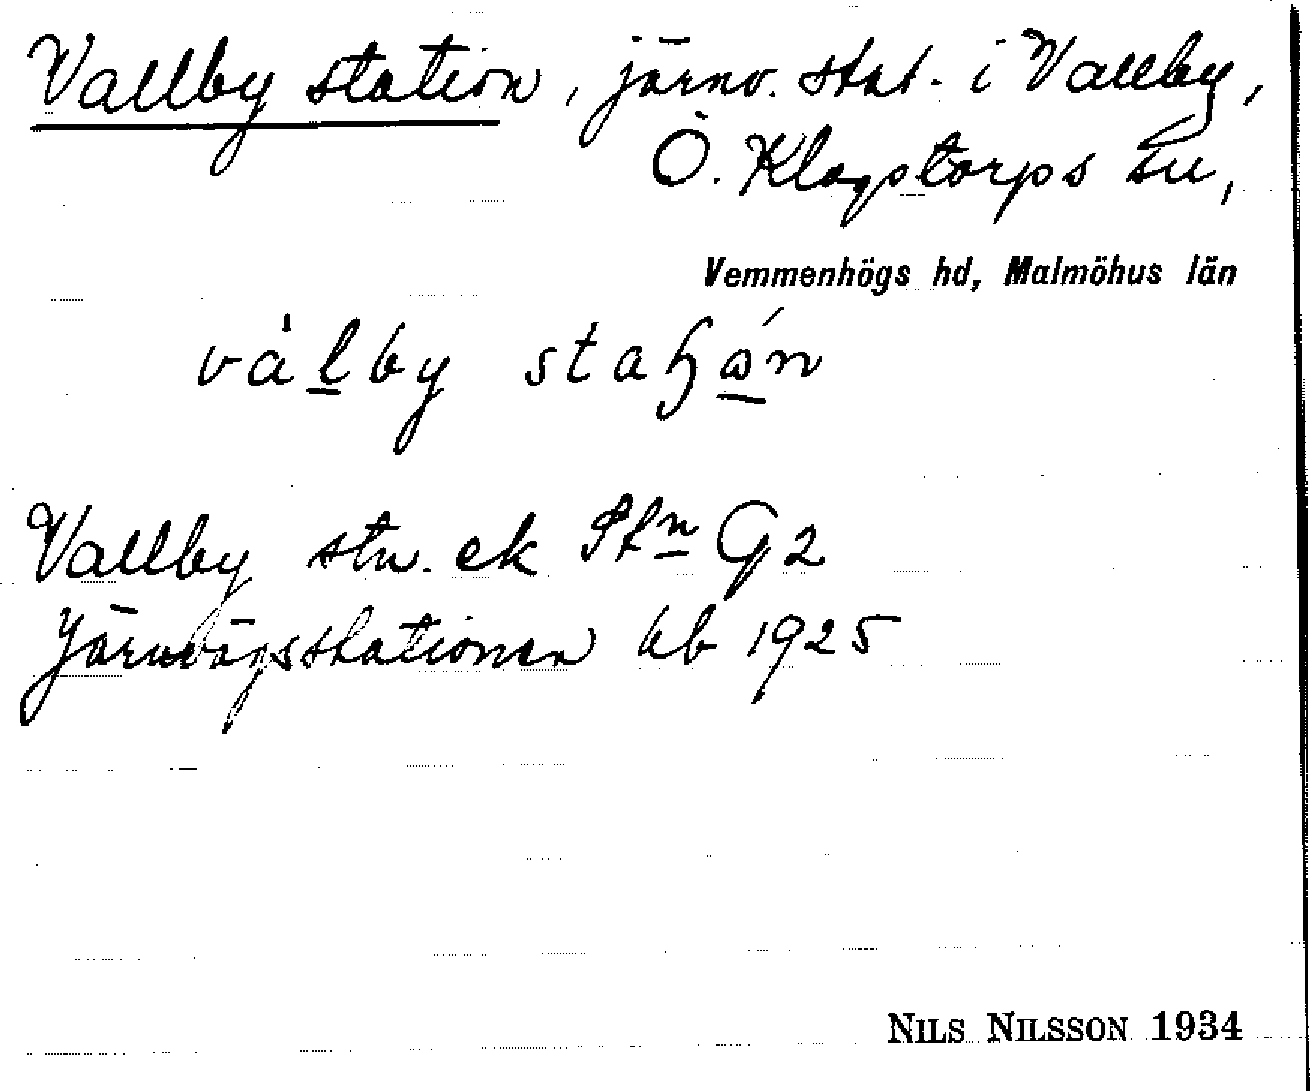 Vallby station, järnv. stat. i Vallby,
Ö. Klagstorps sn,
Vemmenhögs hd, Malmöhus län
vàlby staɧǿn
Vallby stn. ek Stn G2
Järnvägsstationen bb 1925
NILS NILSSON 1934